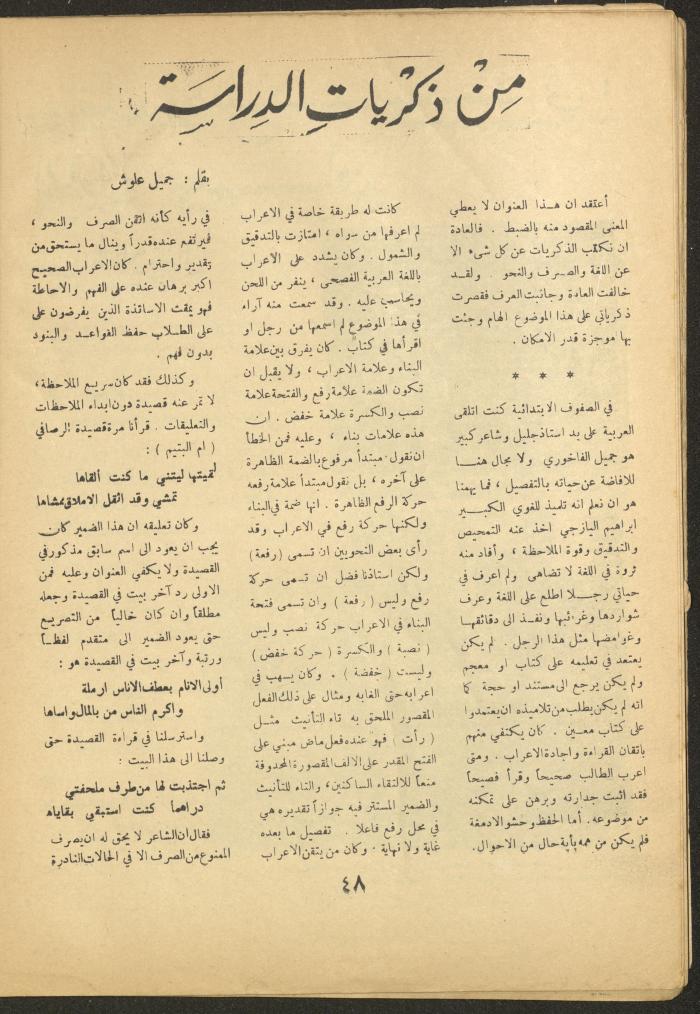 مِنْ ذكْرَياتِ الدِراسَة
بقلم : جميل علوش
أعتقد ان هـذا العنوان لا يعطي
المعنى المقصود منه بالضبط . فالعادة
ان نكتب الذكريات عن كل شيء الا
عن اللغة والصرف والنحو . ولقـد
خالفت العادة وجانبت العرف فقصرت
ذكرياتي على هذا الموضوع الهام وجئت
بها موجزة قدر الامكان .
* * *
في الصفوف الابتدائية كنت اتلقى
العربية على يد استاذ جليل وشاعر كبير
هو جميل الفاخوري ولا مجال هنـا
للافاضة عن حياته بالتفصيل ، فما يهمنا
هو ان نعلم انه تلميذ للغوي الكبـير
ابراهيم اليازجي اخذ عنه التمحيص
والتدقيق وقوة الملاحظة ، وأفاد منه
ثروة في اللغة لا تضاهى ولم اعرف في
حياتي رجـلا اطلع على اللغة وعرف
شواردها وغرائبها ونفـذ الى دقائقهـا
وغوامضها مثل هذا الرجل . لم يكن
يعتمد في تعليمه على كتاب او معجم
ولم يكن يرجع الى مستند او حجة كما
انه لم يكن يطلب من تلاميذه ان يعتمدوا
على كتاب معـين . كان يكتفي منهم
باتقان القراءة واجادة الاعراب . ومتى
اعرب الطالب صحيحاً وقرأ فصيحاً
فقد اثبت جدارته وبرهن على تمكنه
من موضوعه. أما الحفظ وحشو الادمغة
فلم يكن من همه بأية حال من الاحوال.
كانت له طريقة خاصة في الاعراب
لم اعرفها من سواه ، امتازت بالتدقيق
والشمول . وكان يشدد على الاعراب
باللغة العربية الفصحى ، ينفر من اللحن
ويحاسب عليه . وقد سمعت منه آراء
في هذا الموضوع لم اسمعها من رجل او
اقرأها في كتاب . كان يفرق بين علامة
البناء وعلامة الاعراب ، ولا يقبل ان
تكون الضمة علامة رفع والفتحة علامة
نصب والكسرة علامة خفض . ان
هذه علامات بناء ، وعليه فمن الخطأ
ان نقول. مبتدأ مرفوع بالضمة الظاهرة
على آخره ، بل نقول مبتدأ علامة رفعه
حركة الرفع الظاهرة . انها ضمة في البناء
ولكنها حركة رفع في الاعراب وقد
رأى بعض النحويين ان تسمى (رفعة)
ولكن استاذنا فضل ان تسمى حركة
رفع وليس ( رفعة ) وان تسمى فتحة
البناء في الاعراب حركة نصب وليس
( نصبة ) والكسرة ( حركة خفض )
وليست ( خفضة ) . وكان يسهب في
اعرابه حتى الغابه ومثال على ذلك الفعل
المقصور الملحق به تاء التأنيث مثـل
( رأت ) فهو عنده فعل ماض مبني على
الفتح المقدر على الالف المقصورة المحذوفة
منعاً للالتقاء الساكنين، والتاء للتأنيث
والضمير المستتر فيه جوازاً تقديره هي
في محل رفع فاعلا . تفصيل ما بعده
غاية ولا نهاية . وكان من يتقن الاعراب
في رأيه كأنه اتقن الصرف والنحو ،
فيرتفع عنده قدراً وينال ما يستحق من
تقدير واحترام . كان الاعراب الصحيح
اكبر برهان عنده على الفهم والاحاطة
فهو يمقت الاساتذة الذين يفرضون على
على الطـلاب حفظ القواعـد والبنود
بدون فهم .
وكذلك فقد كان سريع الملاحظة ،
لا تمر عنه قصيدة دون ابداء الملاحظات
والتعليقات . قرأنا مرة قصيدة الرصافي
( ام اليتيم ) :
لقيتها ليتني ما كنت ألقاها
تمشي وقد اثقل الاملاق ممشاها
وكان تعليقه ان هذا الضمير كان
يجب ان يعود الى اسم سابق مذكور في
القصيدة ولا يكفي العنوان وعليه فمن
الاولى رد آخر بيت في القصيدة وجعله
مطلقاً وان كان خالياً من التصريع
حتى يعود الضمير الى متقدم لفظـاً
ورتبة وآخر بيت في القصيدة هو :
أولى الانام بعطف الاناس ارملة
واكرم الناس من بالمال واساها
واسترسلنا في قراءة القصيدة حتى
وصلنا الى هذا البيت :
ثم اجتذبت لها من طرف ملحفتي
دراهماً كنت استبقي بقاياه
فقال ان الشاعر لا يحق له ان يصرف
الممنوع من الصرف الا في الحالات النادرة
٤٨